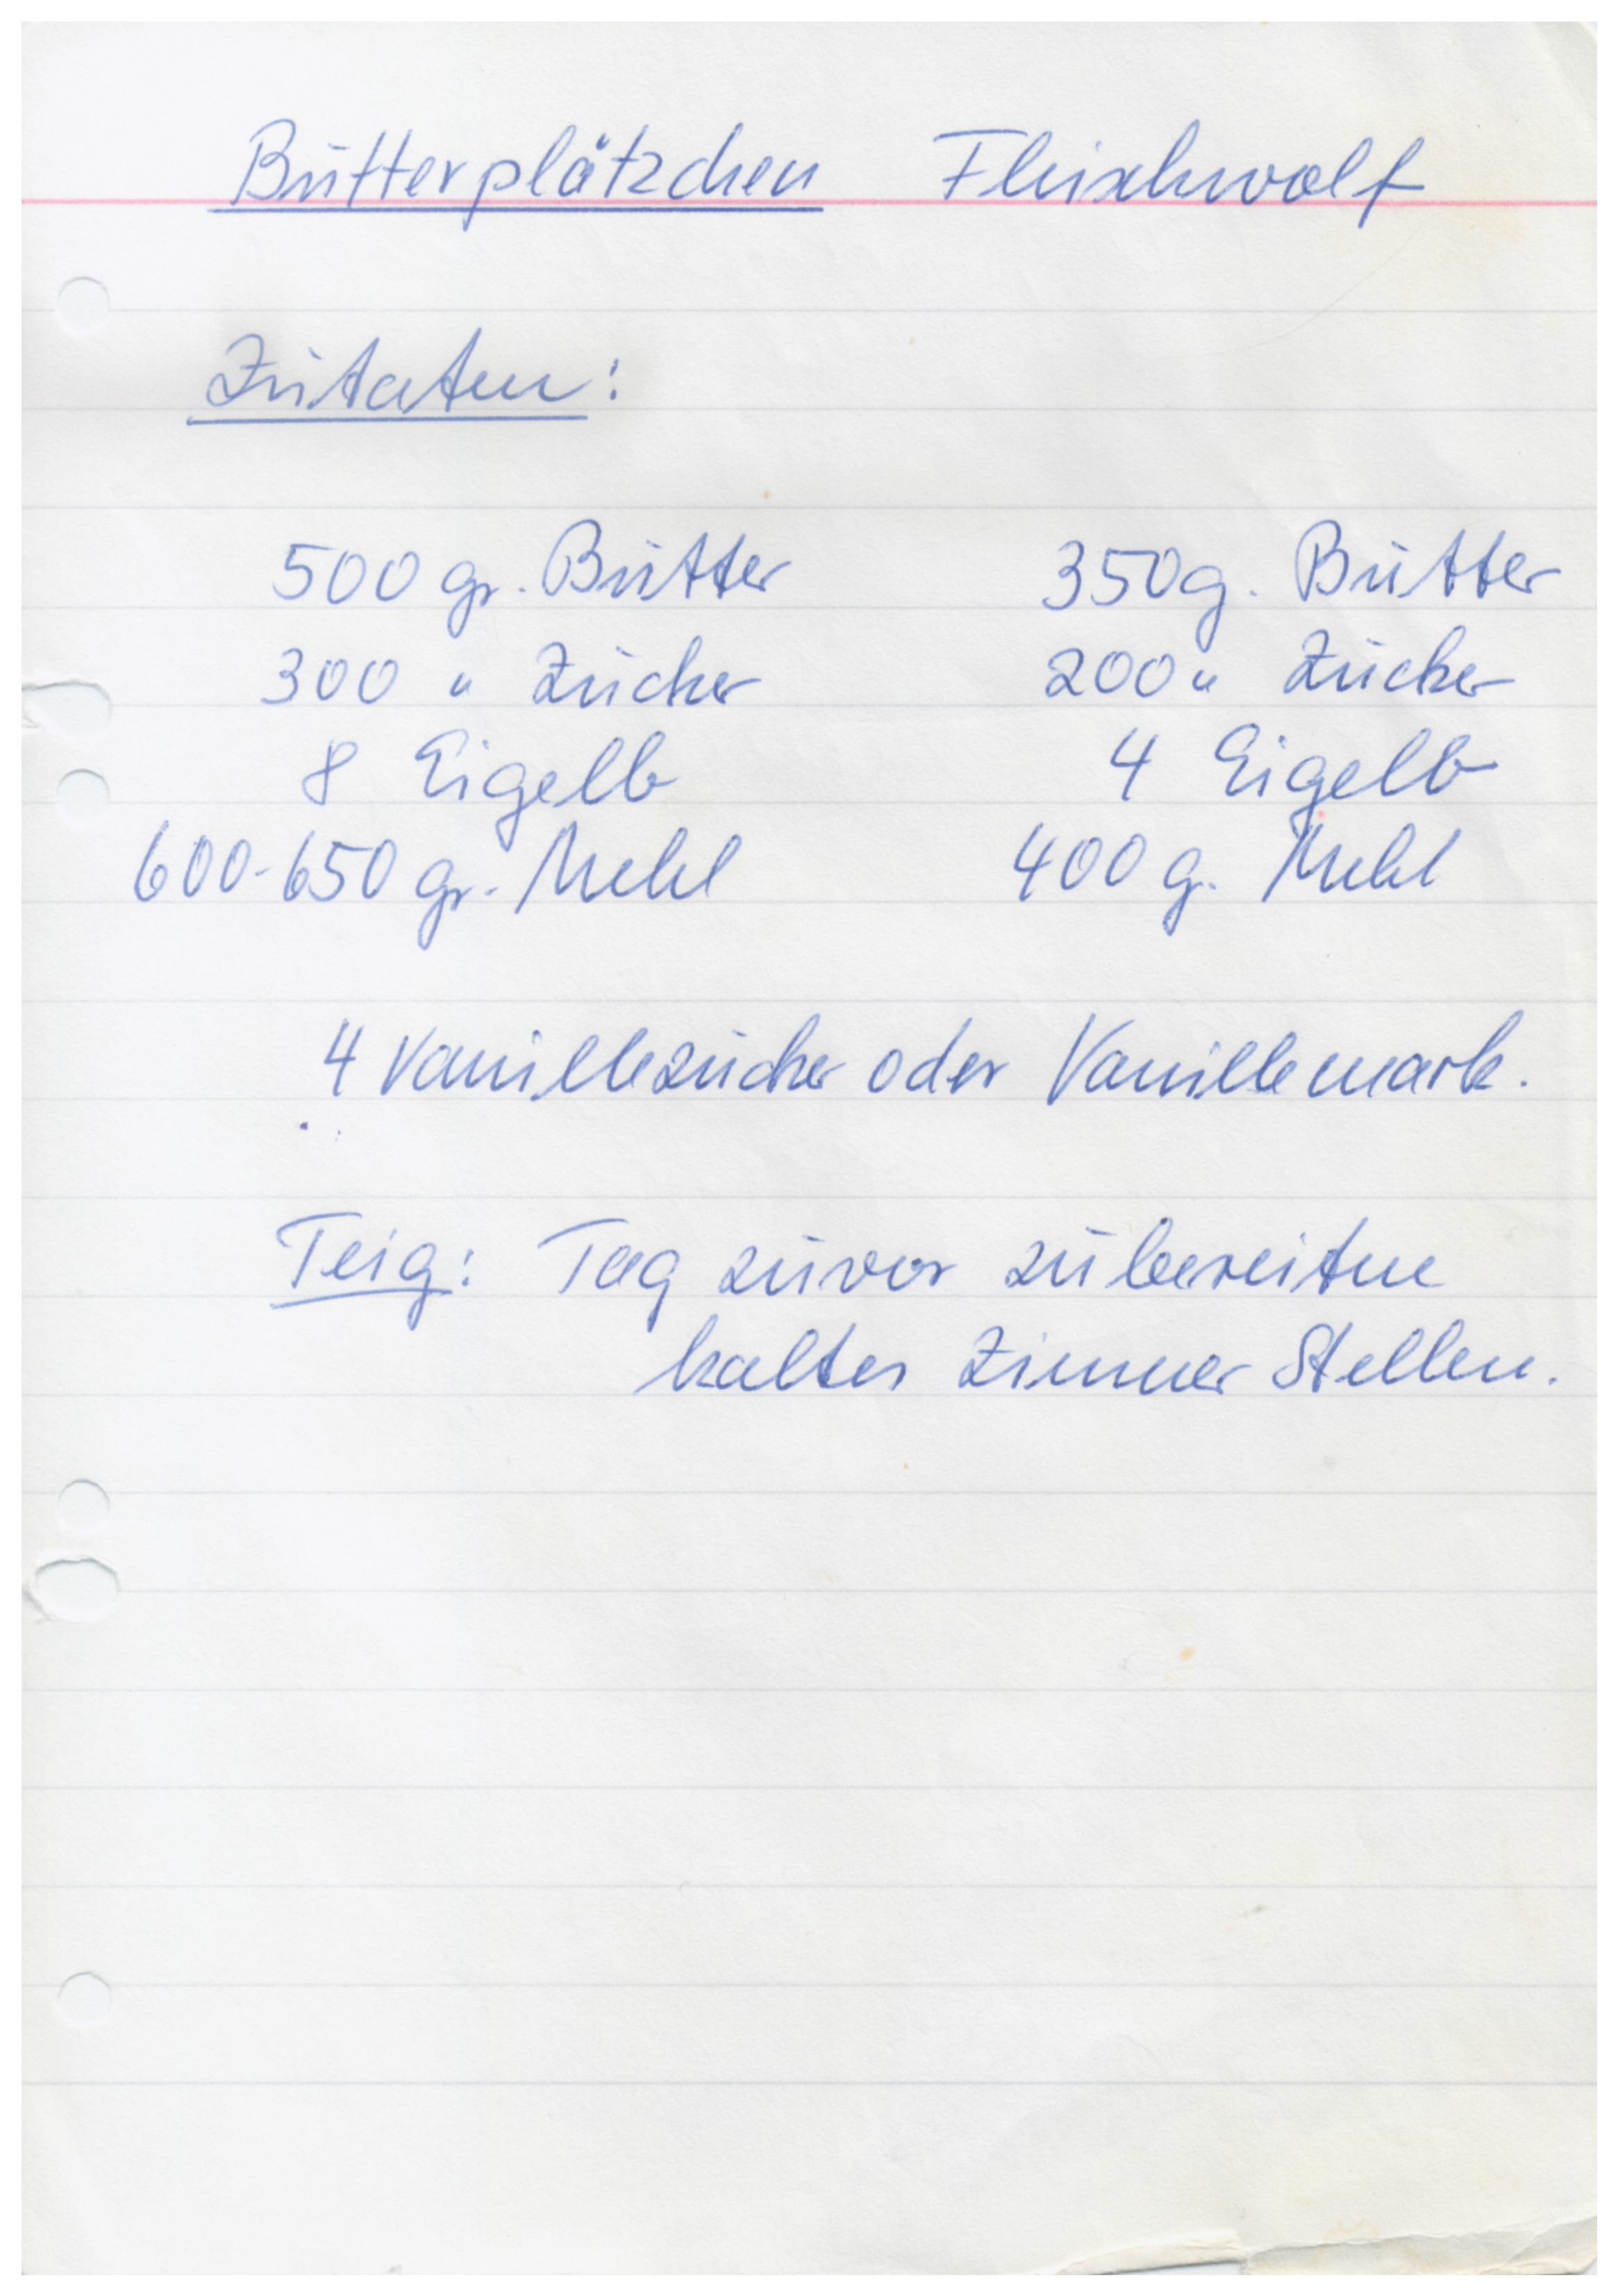 Butterplätzchen Fleischwolf
Zutaten:
500 gr. Butter 350g. Butter
300 " Zucker 200 " Zucker
8 Eigelb 4 Eigelb
600-650 gr. Mehl 400 g. Mehl
4 Vanillezucker oder Vanillemark.
Teig: Tag zuvor zubereiten
kaltes Zimmer Stellen.